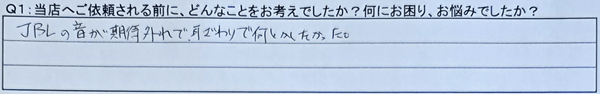 Q1：当店へご依頼される前に、どんなことをお考えでしたか？何にお困り、お悩みでしたか？
JBLの音が期待外れで、耳ざわりで何とかしたかった。